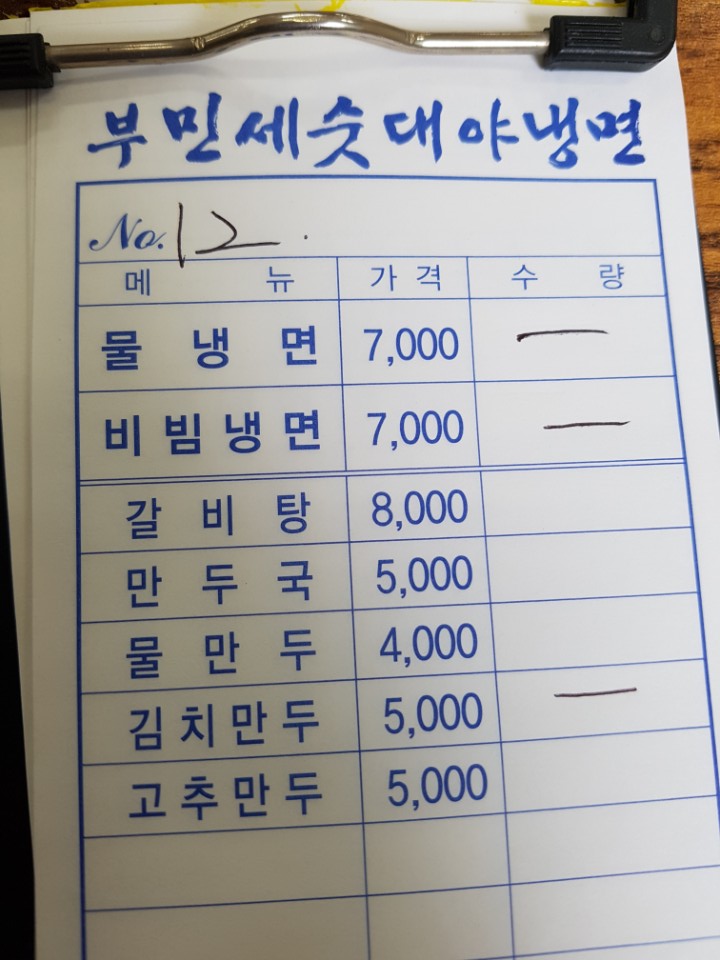 부민세숫대야냉면
No. 12.
메뉴 가격 수량
물냉면 7,000 一
비빔냉면 7,000 一
갈비탕 8,000
만두국 5,000
물만두 4,000
김치만두 5,000 一
고추만두 5,000